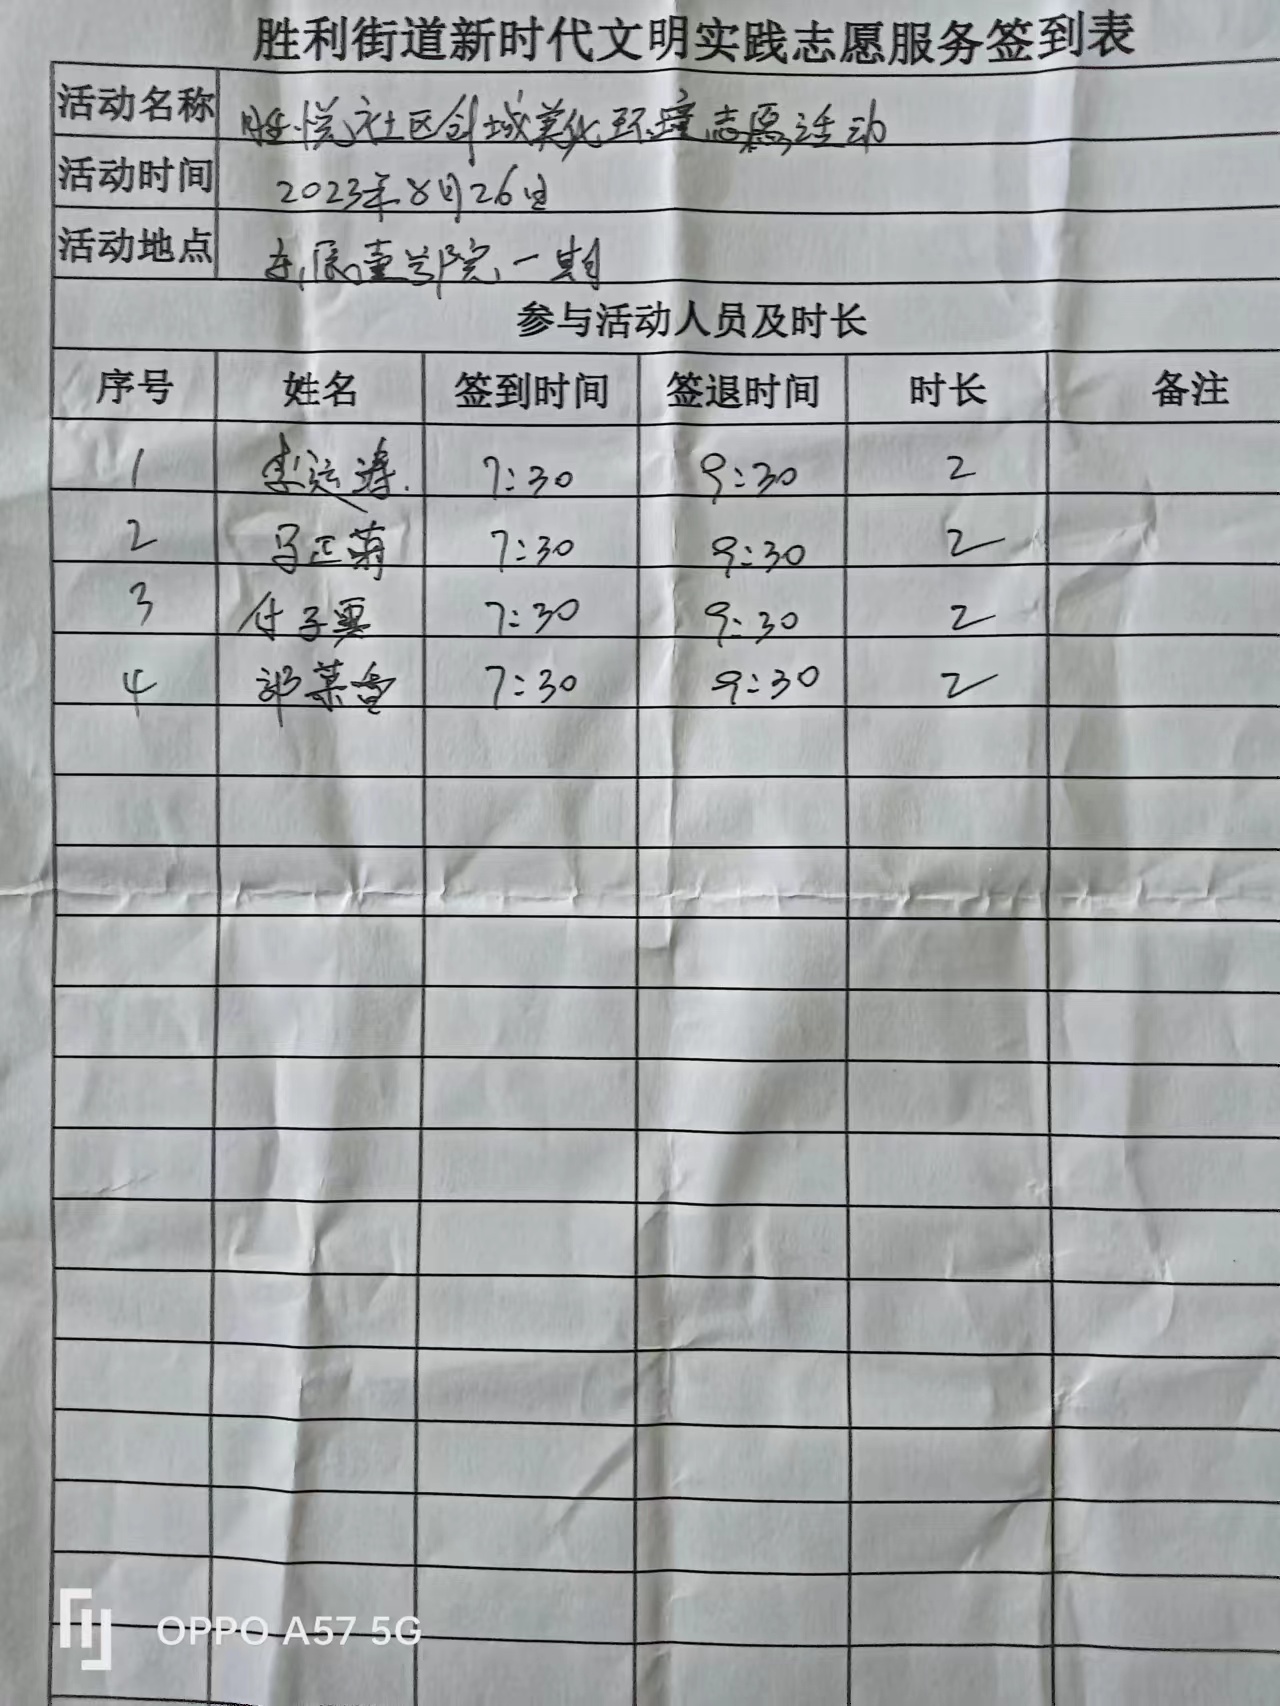 胜利街道新时代文明实践志愿服务签到表
活动名称 胜悦社区创城美化环境志愿活动
活动时间 2023年8月26日
活动地点 学院一期
参与活动人员及时长
序号 姓名 签到时间 签退时间 时长 备注
1 李运涛 7:30 9:30 2
2 马正菊 7:30 9:30 2
3 付子 7:30 9:30 2
4 7:30 9:30 2
OPPO A57 5G